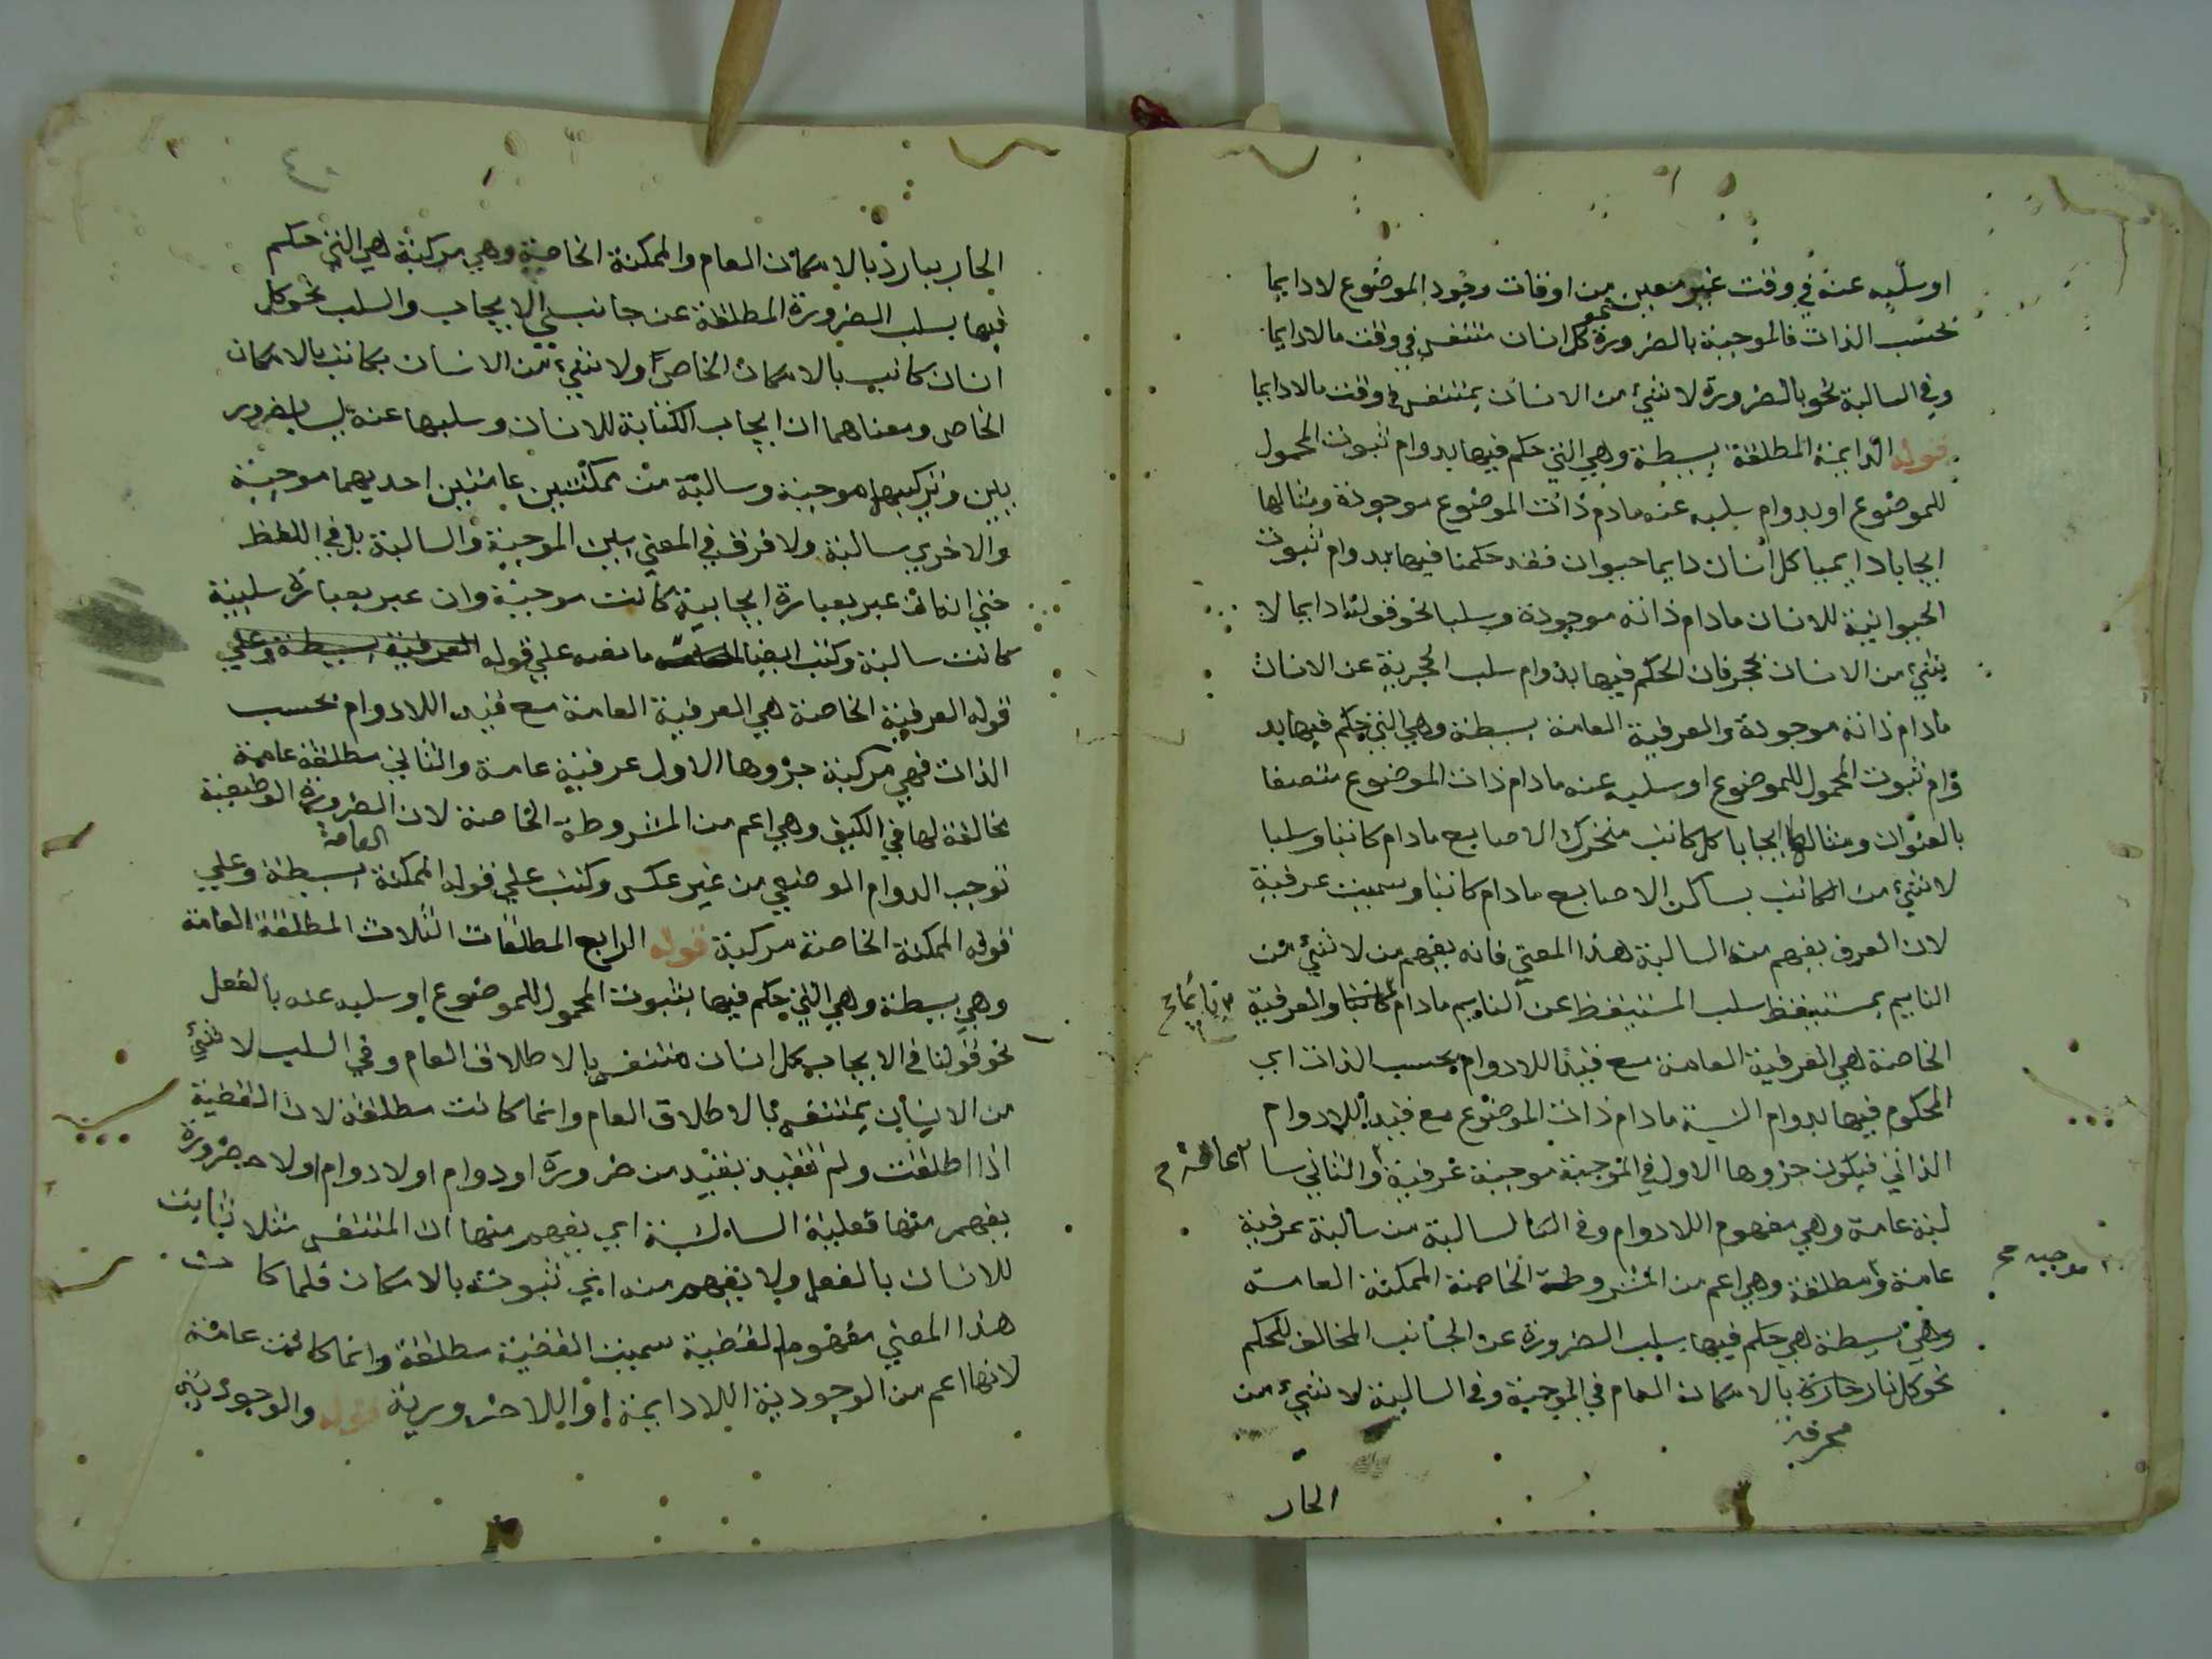 او سلبه عنه في وقت غير معين من اوقات وجود الموضوع لا دايما
بحسب الذات فالموجبة بالضرورة كل انسان متنفس في وقت ما لا دايما
نحو
وفي السالبة نحو بالضرورة لا شيء من الانسان بمتنفس في وقت ما لا دايما
قوله الدايمة المطلقة بسيطة وهي التي حكم فيها بدوام ثبوت المحمول
للموضوع او بدوام سلبه عنه مادم ذات الموضوع موجودة ومثالها
ايجابا دايميا كل انسان دايما حيوان فقد حكمنا فيها بدوام ثبوت
الحيوانية للانسان مادام ذاته موجودة وسلبا نحو قولنا دايما لا
شيء من الانسان بحجر فان الحكم فيها بدوام سلب الحجرية عن الانسان
مادام ذاته موجودة والعرفية العامة بسيطة وهي التي حكم فيها بد
وام ثبوت المحمول للموضوع او سلبه عنه مادام ذات الموضوع متصفا
بالعنوان ومثالها ايجابا كل كاتب متحرك الاصابع مادام كاتبا وسلبا
لا شيء من الكاتب بساكن الاصابع مادام كاتبا وسميت عرفية
لان العرف يفهم من السالبة هذا المعني فانه يفهم من لا شيء من
النايم بمستيقظ سلب المستيقظ عن النايم مادام كاتبا والعرفية
نايما صح
الخاصة هي العرفية العامة مع قيد اللادوام بحسب الذات اي
المحكوم فيها بدوام النسبة مادام ذات الموضوع مع قيد اللادوام
الذاتي فيكون جزوها الاول في الموجبة موجبة عرفية والثاني سا
عامة
لبة عامة وهي مفهوم اللادوام وفي السالبة من سالبة عرفية
عامة ومطلقة وهي اعم من المشروطة الخاصة الممكنة العامة
موجبه صح
وهي بسيطة هي حكم فيها بسلب الضرورة عن الجانب المخالف للحكم
نحو كل نار حارة بالامكان العام في الموجبة وفي السالبة لا شيء من
محرقة
الحار
٤٠
الحار ببارد بالامكان العام والممكنة الخاصة وهي مركبة هي التي حكم
فيها بسلب الضرورة المطلقة عن جانبي الايجاب والسلب نحو كل
انسان كاتب بالامكان الخاص ولا شيء من الانسان بكاتب بالامكان
الخاص ومعناهما ان ايجاب الكتابة للانسان وسلبها عنه ليسا بضرور
يين وتركيبها موجبة وسالبة من ممكنتين عامتين احديهما موجبة
والاخري سالبة ولا فرق في المعني بين الموجبة والسالبة بل في اللفظ
حتي ان عبر بعبارة ايجابية كانت موجبة وان عبر بعبارة سلبية
كانت سالبة وكتب ايضا ما نصه علي قوله العرفية بسيطة وعلي
قوله العرفية الخاصة هي العرفية العامة مع قيد اللادوام بحسب
الذات فهي مركبة جزوها الاول عرفية عامة والثاني مطلقة عامة
مخالفة لها في الكيف وهي اعم من المشروطة الخاصة لان الضرورة الوصفية
توجب الدوام الوصفي من غير عكس وكتب علي قوله الممكنة بسيطة وعلي
العامة
قوله الممكنة الخاصة مركبة قوله الرابع المطلقات الثلاث المطلقة العامة
وهي بسيطة وهي التي حكم فيها بثبوت المحمول للموضوع او سلبه عنه بالفعل
نحو قولنا في الايجاب كل انسان متنفس بالاطلاق العام وفي السلب لا شيء
من الانسان بمتنفس بالاطلاق العام وانما كانت مطلقة لان القضية
اذا اطلقت ولم تقيد بقيد من ضرورة او دوام او لا دوام او لا ضرورة
يفهم منها فعلية النسبة اي يفهم منها ان المتنفس مثلا ثابت
للانسان بالفعل ولا يفهم منه اي ثبوته بالامكان فلما كا ن
هذا المعني مفهوم القضية سميت القضية مطلقة وانما كانت عامة
لانها اعم من الوجودية اللادايمة او اللاضرورية قوله والوجودية